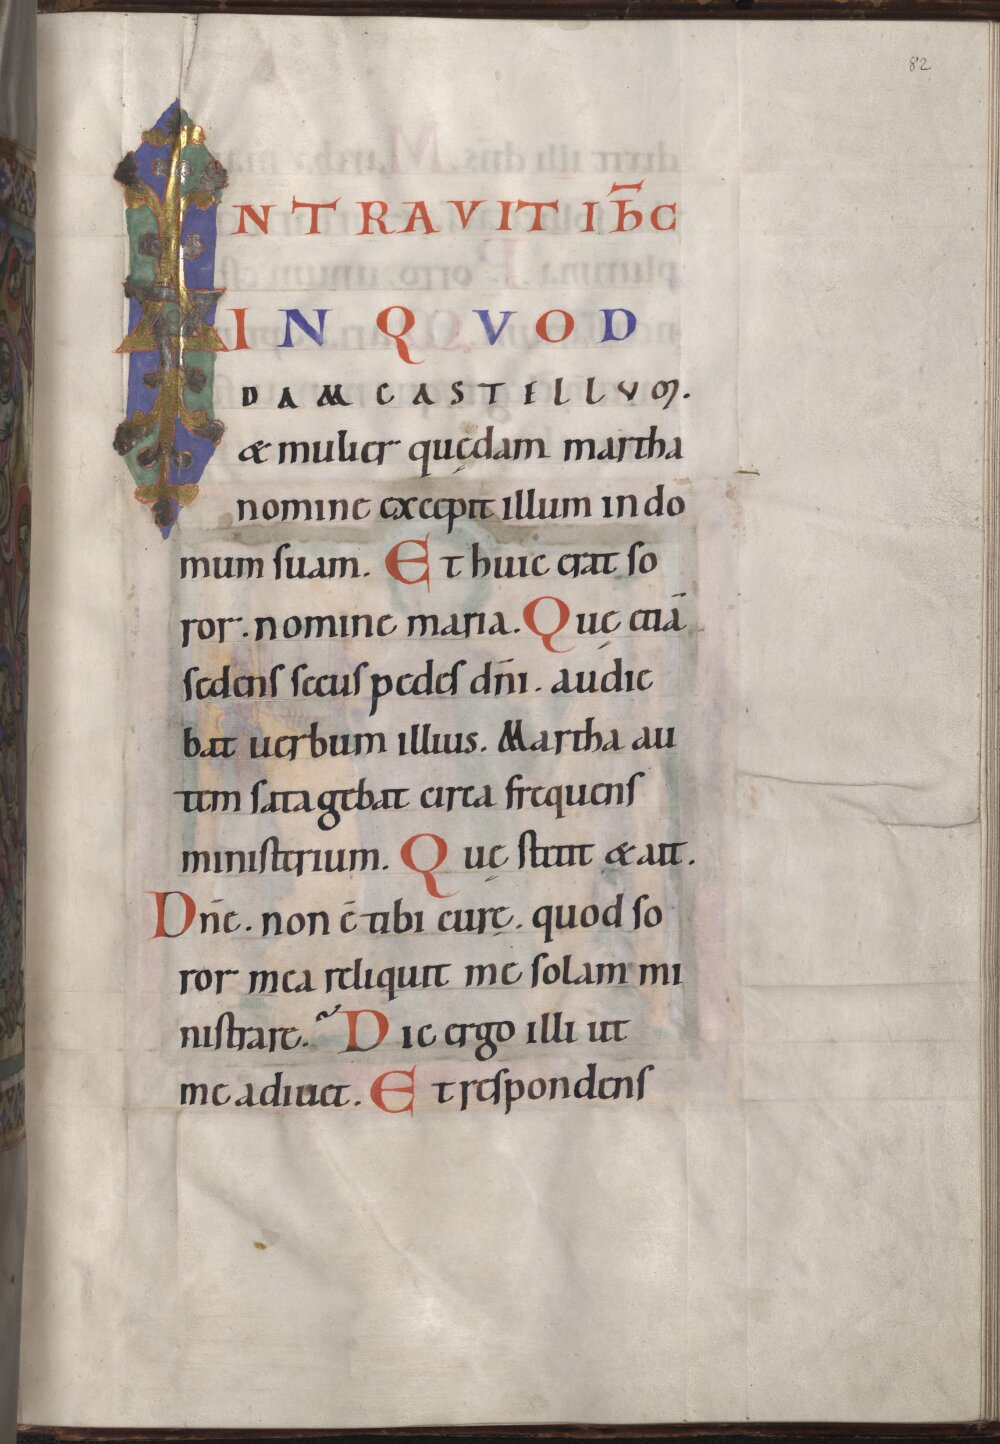 82
INTRAVIT IħC
IN QVOD
DAM CASTELLVM.
& mulier quędam martha
nomine excepit illum in do
mum suam. Et huic erat so
ror. nomine maria. Quę etiā
sedens secus pedes dn̄i. audie
bat uerbum illius. Martha au
tem satagebat circa frequens
ministerium. Quę stetit & ait.
Dn̄e. non ē tibi curę. quod so
ror mea reliquit me solam mi
nistrare. Dic ergo illi ut
me adiuuet. Et respondens